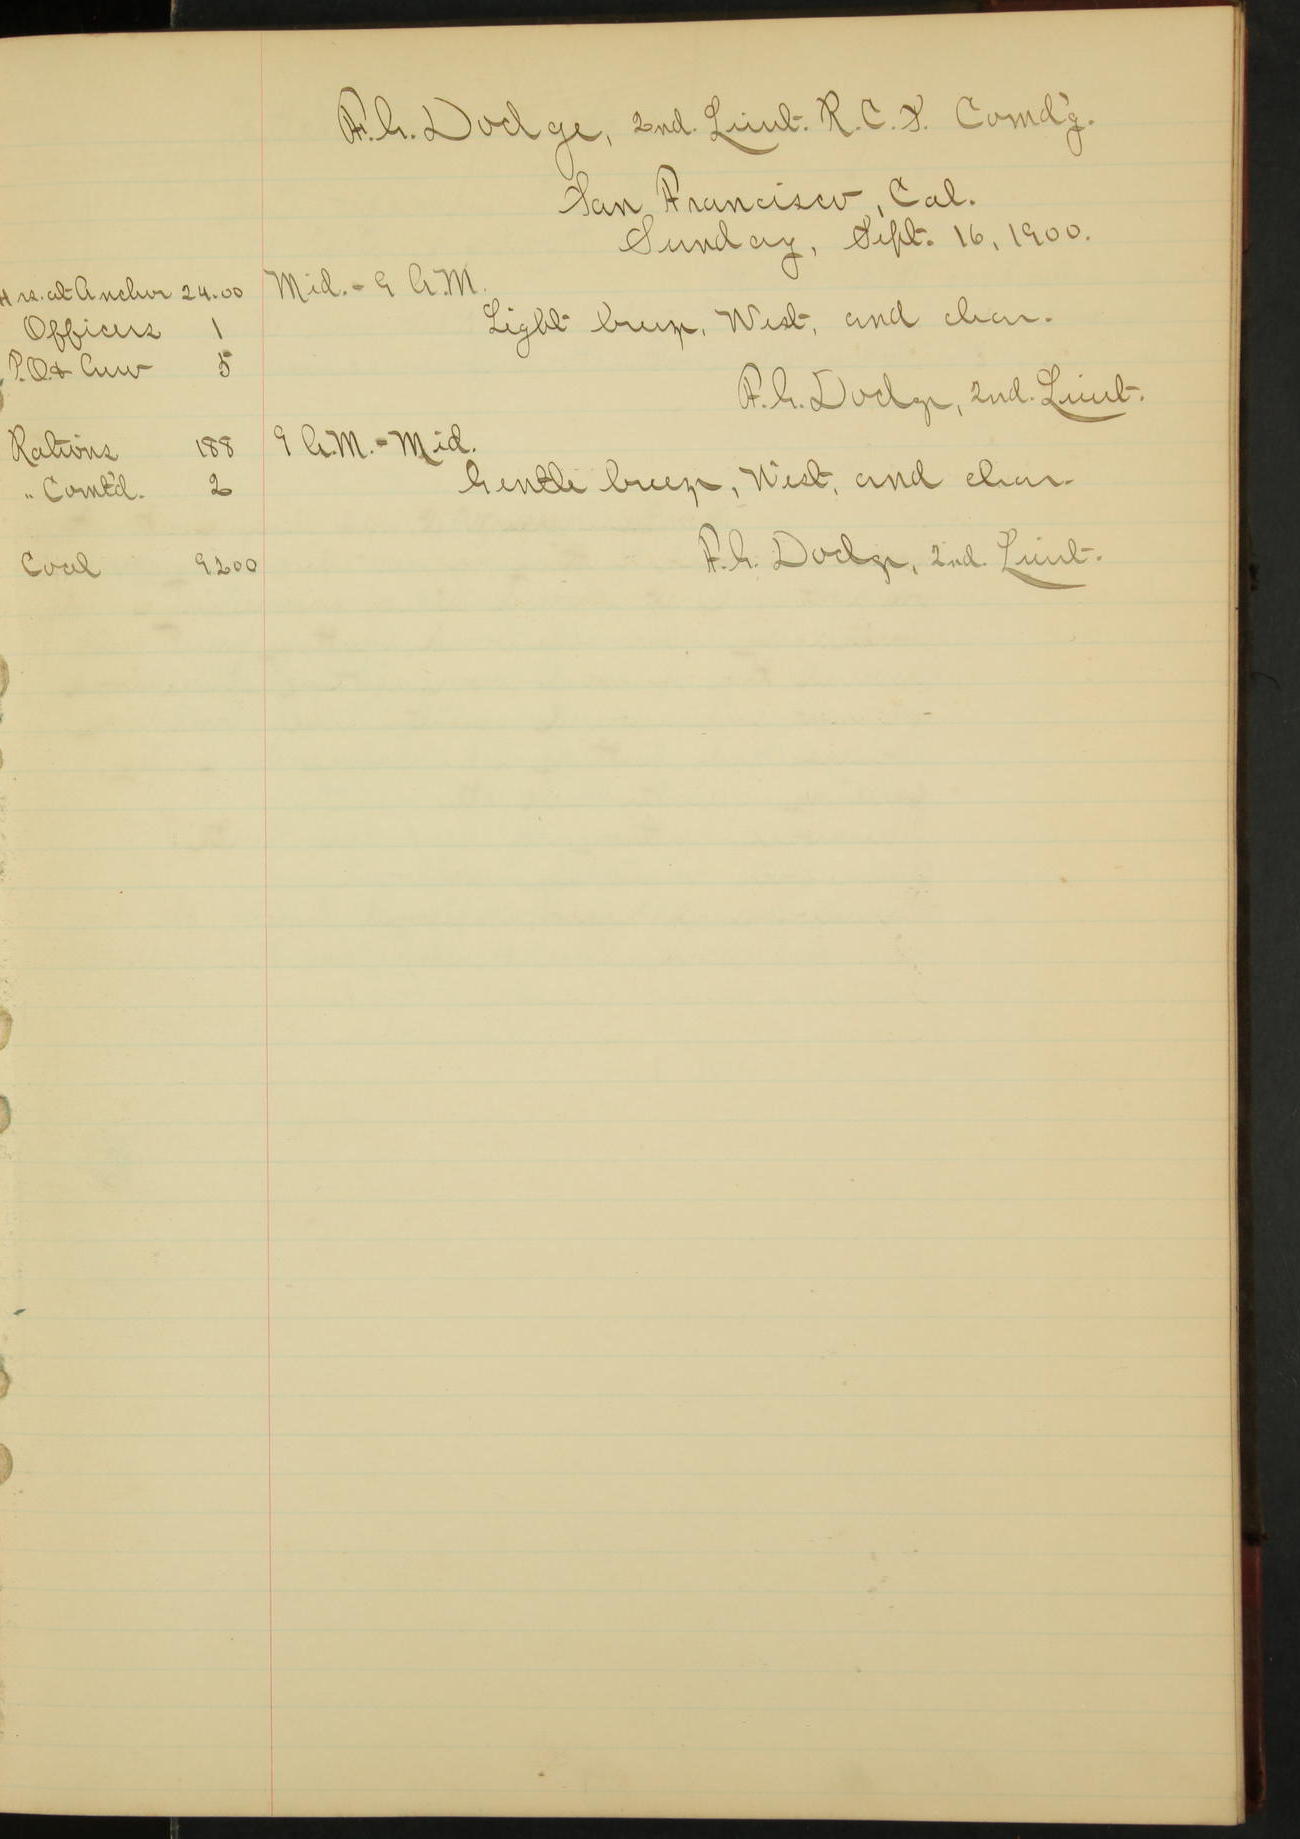 F. G. Dodge, 2nd. Lieut. R. C. S. Comd'g.
San Francisco, Cal.
Sunday, Sept. 16, 1900.
Hrs. at Anchor 24.00 Mid. - 9 A.M.
Officers 1 Light breeze, West, and clear.
P.O. & Crew 5
F. G. Dodge, 2nd. Lieut.
Rations 188 9 A.M. - Mid.
" Comt'd. 2 Gentle breeze, West, and clear.
Coal 9200 F. G. Dodge, 2nd. Lieut.